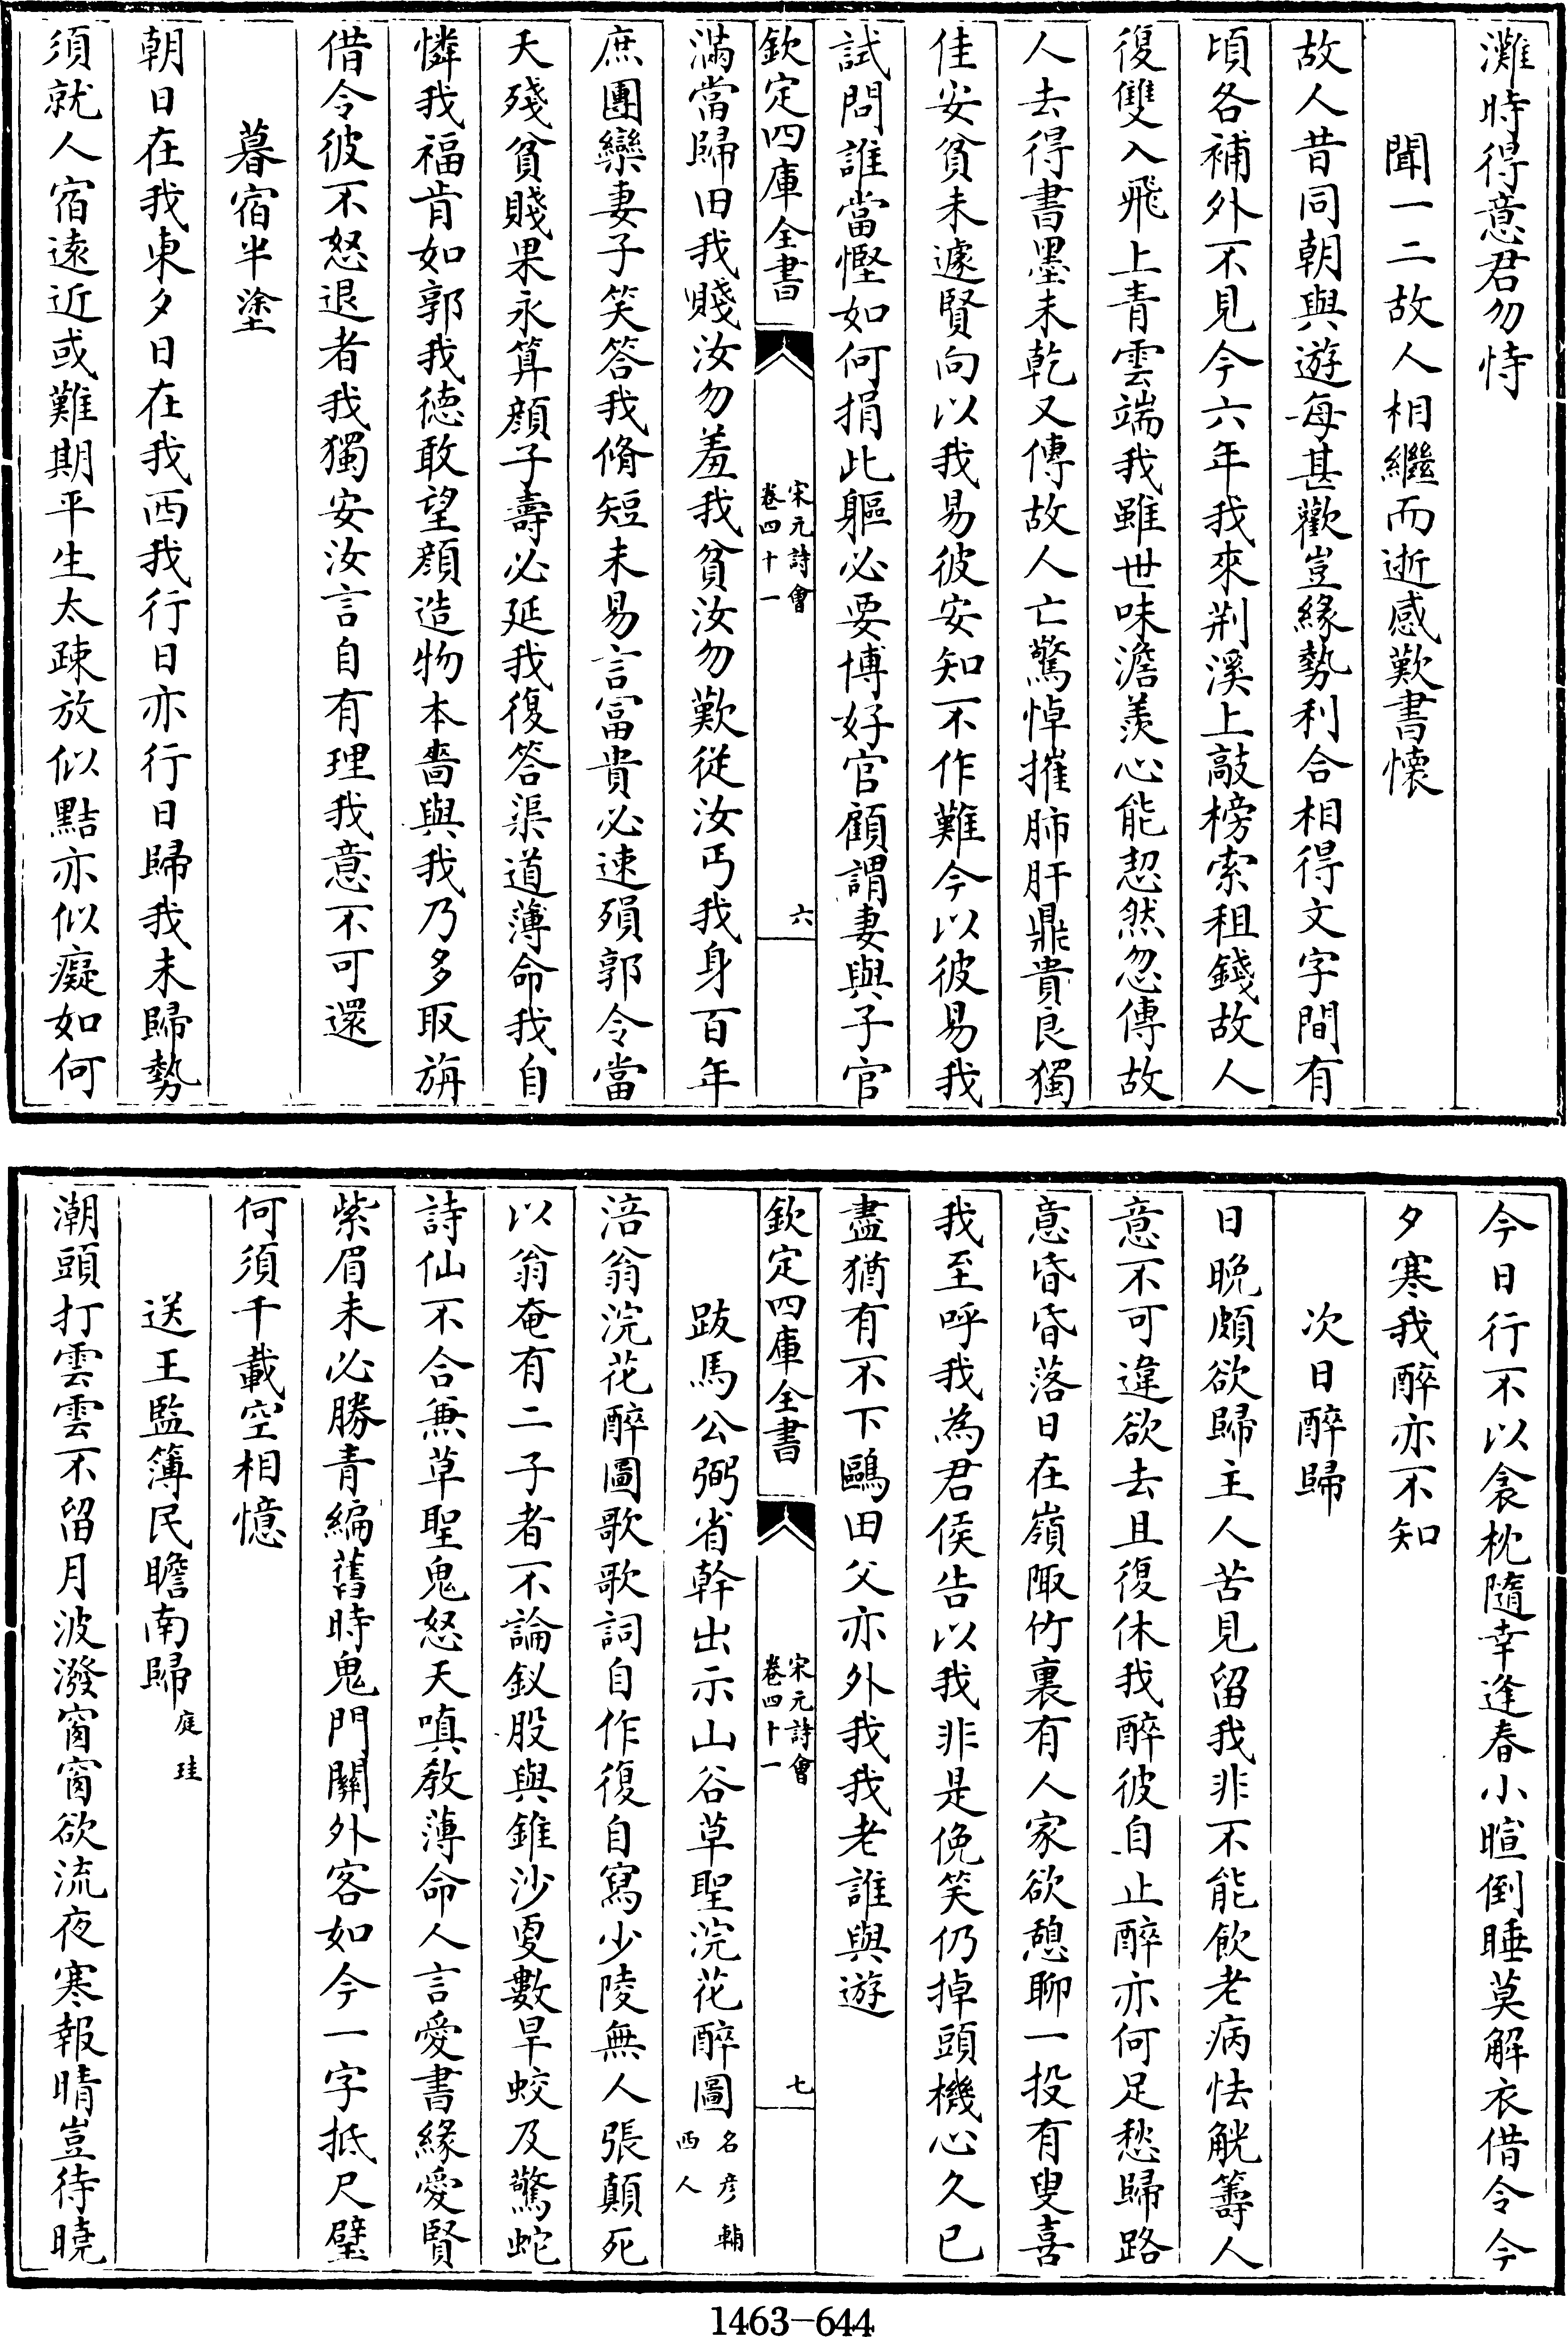 灘時得意君勿恃
聞一二故人相繼而逝感歎書懷
故人昔同朝與遊每甚歡豈緣勢利合相得文字間有
頃各補外不見今六年我來荆溪上敲榜索租錢故人
復雙入飛上青雲端我雖世味澹羡心能恝然忽傳故
人去得書墨未乾又傳故人亡驚悼摧肺肝鼎貴良獨
佳安貧未遽賢向以我易彼安知不作難今以彼易我
試問誰當慳如何捐此軀必要博好官顧謂妻與子官
欽定四庫全書
宋元詩會
卷四十一
六
滿當歸田我賤汝勿羞我貧汝勿歎從汝丐我身百年
庶團欒妻子笑答我脩短未易言富貴必速殞郭令當
天殘貧賤果永算顔子壽必延我復答渠道薄命我自
憐我福肯如郭我徳敢望顔造物本嗇與我乃多取旃
借令彼不怒退者我獨安汝言自有理我意不可還
暮宿半塗
朝日在我東夕日在我西我行日亦行日歸我未歸勢
須就人宿逺近或難期平生太疎放似黠亦似癡如何
今日行不以衾枕隨幸逢春小暄倒睡莫解衣借令今
夕寒我醉亦不知
次日醉歸
日晚頗欲歸主人苦見留我非不能飲老病怯觥籌人
意不可違欲去且復休我醉彼自止醉亦何足愁歸路
意昏昏落日在嶺陬竹裏有人家欲憩聊一投有叟喜
我至呼我為君侯告以我非是俛笑仍掉頭機心久已
盡猶有不下鷗田父亦外我我老誰與遊
欽定四庫全書
宋元詩會
卷四十一
七
跋馬公弼省幹出示山谷草聖浣花醉圖名彦輔
西人
涪翁浣花醉圖歌歌詞自作復自寫少陵無人張顛死
以翁奄有二子者不論釵股與錐沙㪅數旱蛟及驚蛇
詩仙不合兼草聖鬼怒天嗔教薄命人言愛書緣愛賢
紫眉未必勝青編舊時鬼門關外客如今一字抵尺璧
何須千載空相憶
送王監簿民瞻南歸庭珪
潮頭打雲雲不留月波潑窗窗欲流夜寒報晴豈待曉
1463-644